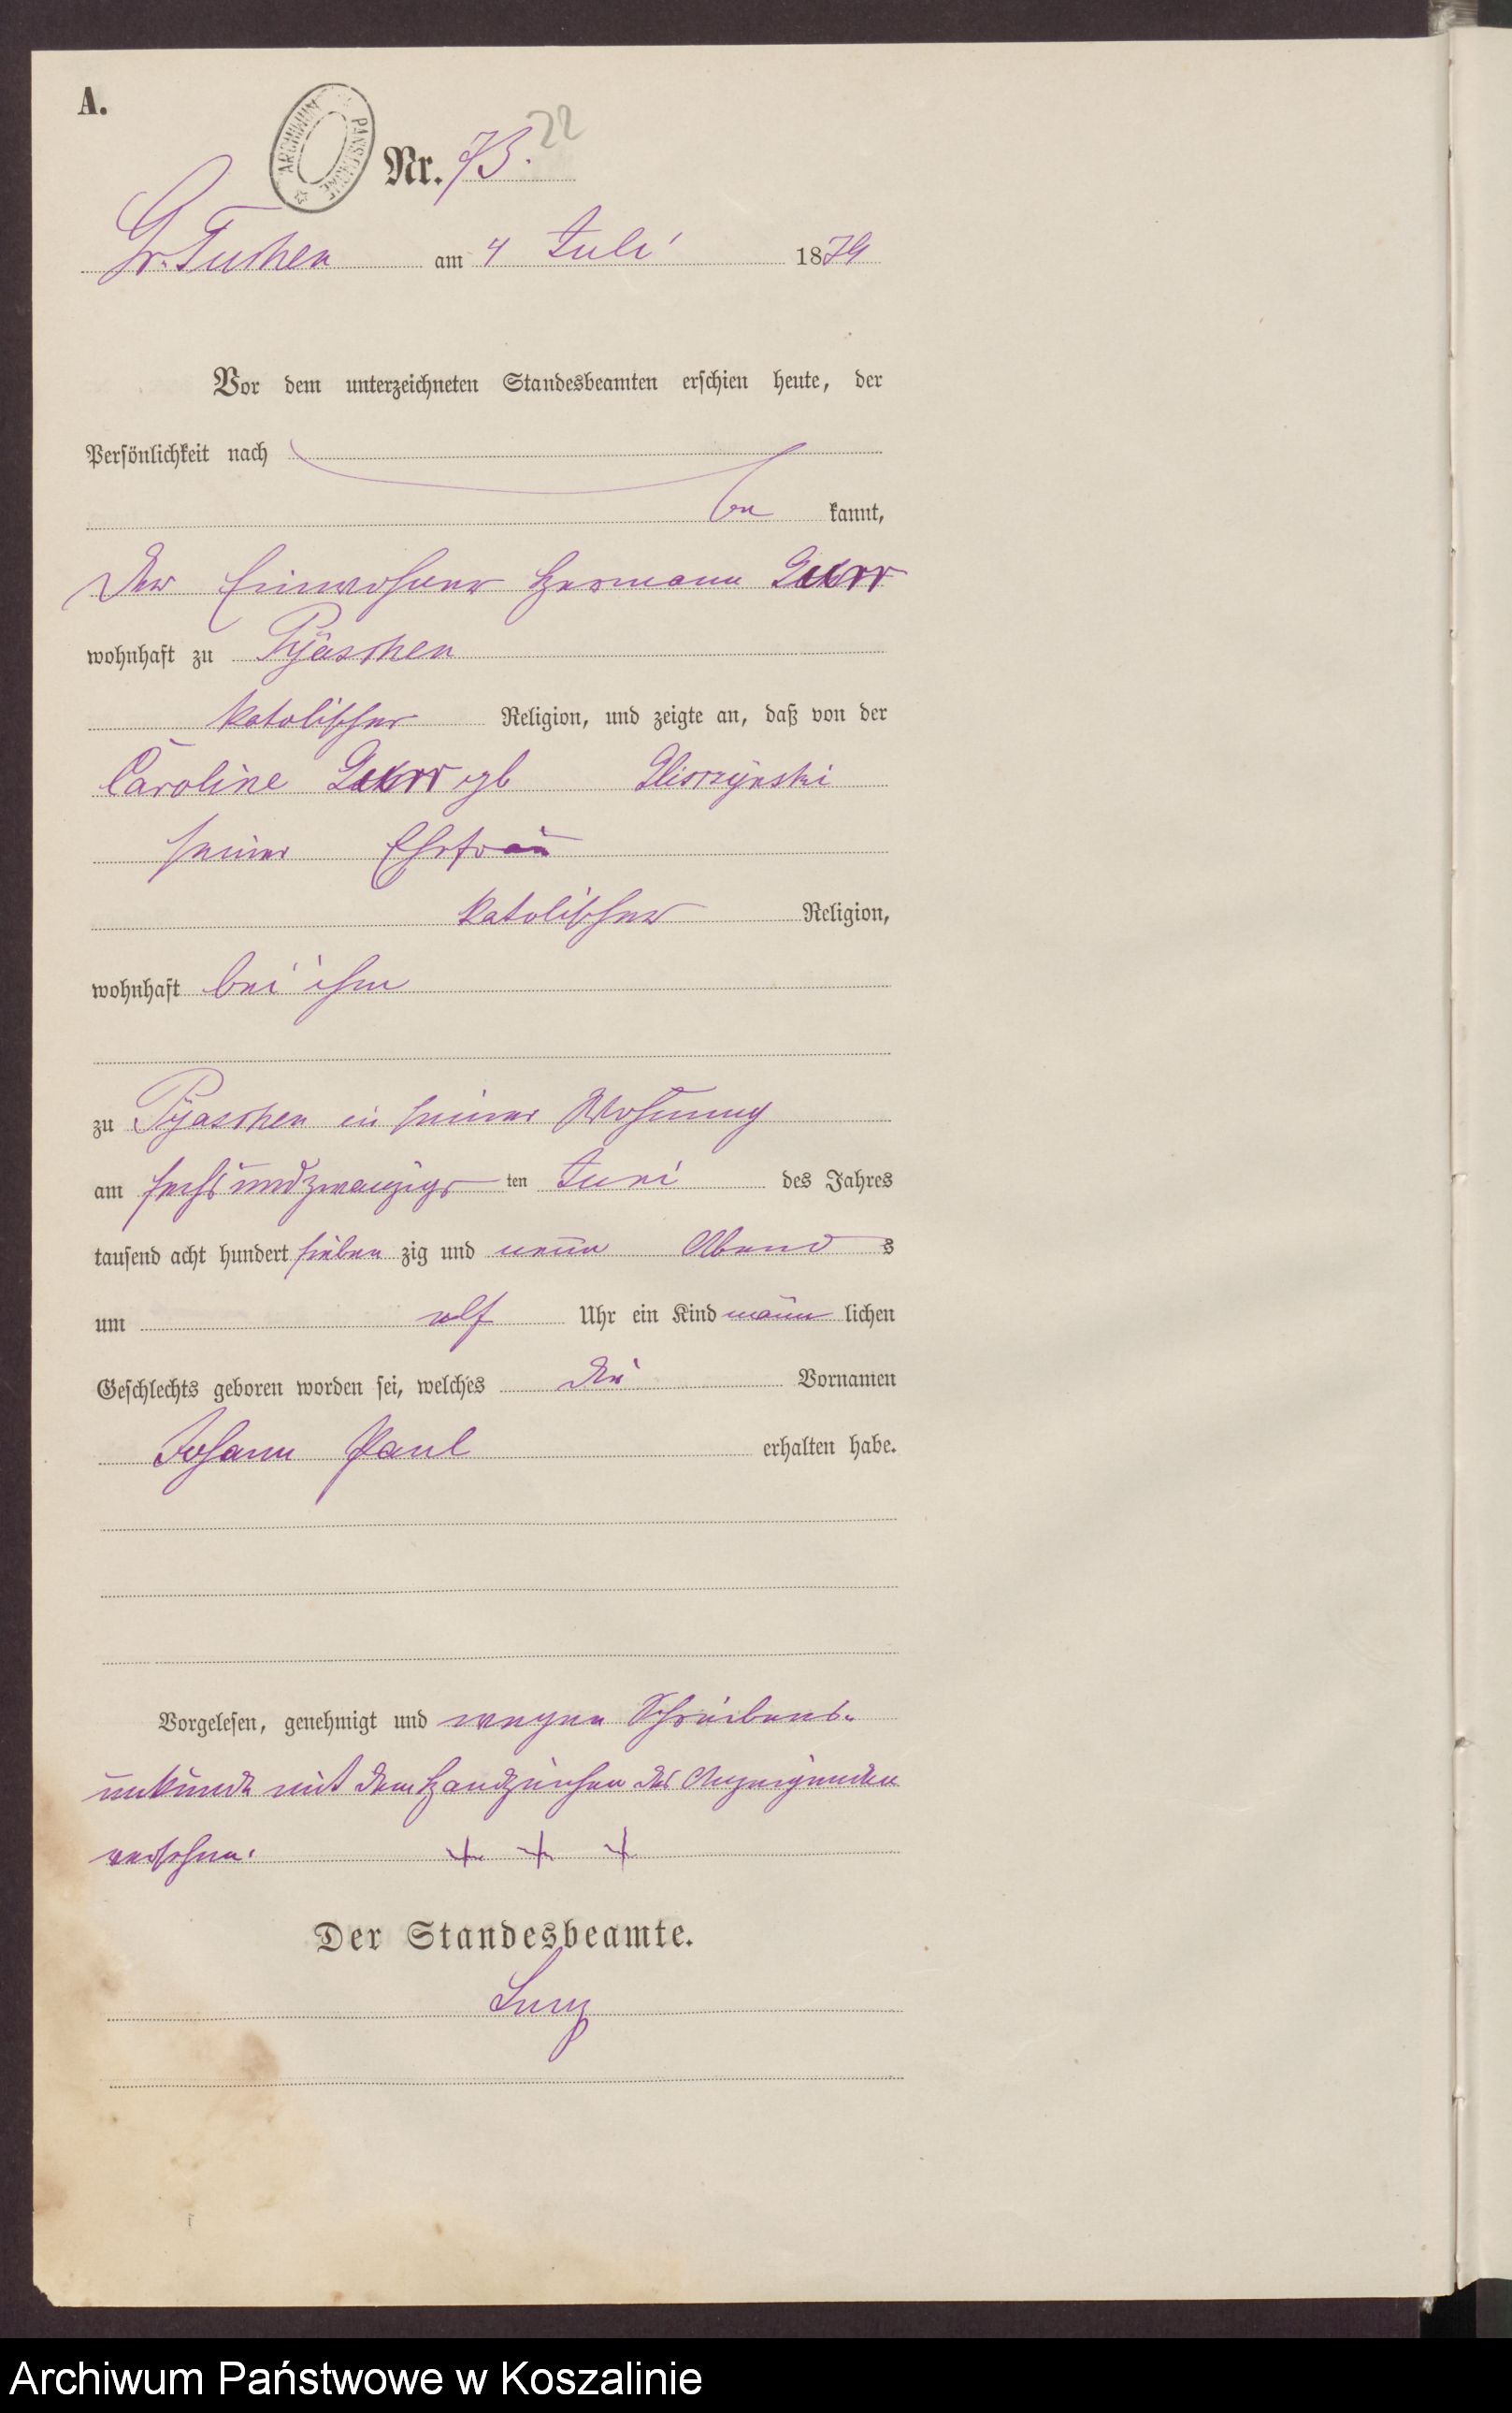 A.
ARCHIWUM PAŃSTWOWE
Nr. 73. 22
Gr. Tuchen am 4 Juli 1879
Vor dem unterzeichneten Standesbeamten erschien heute, der
Persönlichkeit nach
be kannt,
der Einwohner Hermann
wohnhaft zu Pyaschen
katolischer Religion, und zeigte an, daß von der
Caroline gb Gliszzynski
seiner Ehefrau
katolischer Religion,
wohnhaft bei ihm
zu Pyaschen in seiner Wohnung
am sechs und zwanzigs ten Juni des Jahres
tausend acht hundert sieben zig und neun Abend s
um elf Uhr ein Kind männ lichen
Geschlechts geboren worden sei, welches die Vornamen
Johann Paul erhalten habe.
Vorgelesen, genehmigt und wegen Schreibens-
unkunde mit dem Handzeichen des Anzeigenden
versehen. + + +
Der Standesbeamte.
Archiwum Państwowe w Koszalinie